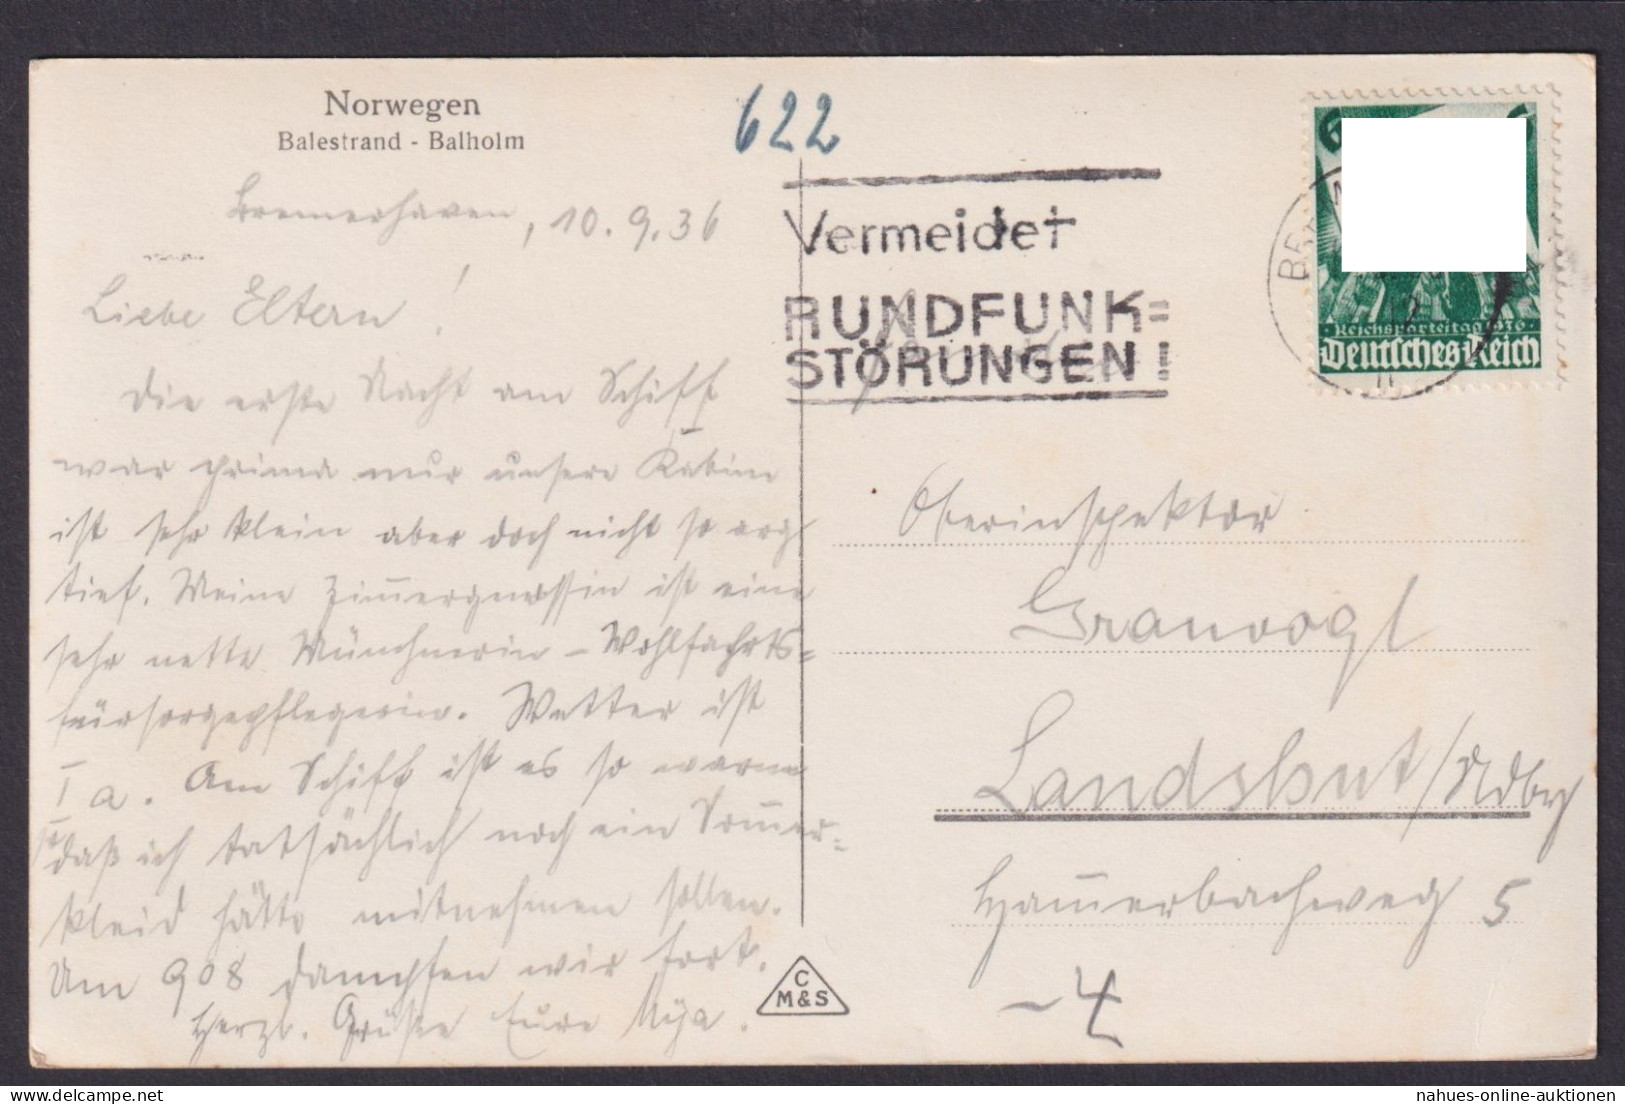 Norwegen
Balestrand - Balholm
622
Bremerhaven, 10.9.36
Liebe Eltern!
Die erste Nacht am Schiff
war prima nur unsere Kabine
ist sehr klein aber doch nicht so arg
tief. Meine Zim̅ergenossin ist eine
sehr nette Münchnerin – Wohlfahrts=
fürsorgepflegerin. Wetter ist
I a. Am Schiff ist es so warm
daß ich tatsächlich noch ein Som̅er=
kleid hätte mitnehmen sollen.
Um 908 dampfen wir fort.
Herzl. Grüße Eure
C
M&S
Vermeidet
RUNDFUNK=
STÖRUNGEN!
6 6
Reichsparteitag 1936
Deutsches Reich
Oberinspektor
Granvogl
Landshut/Ndby
Ham̅erbachweg 5
nahues-online-auktionen.com